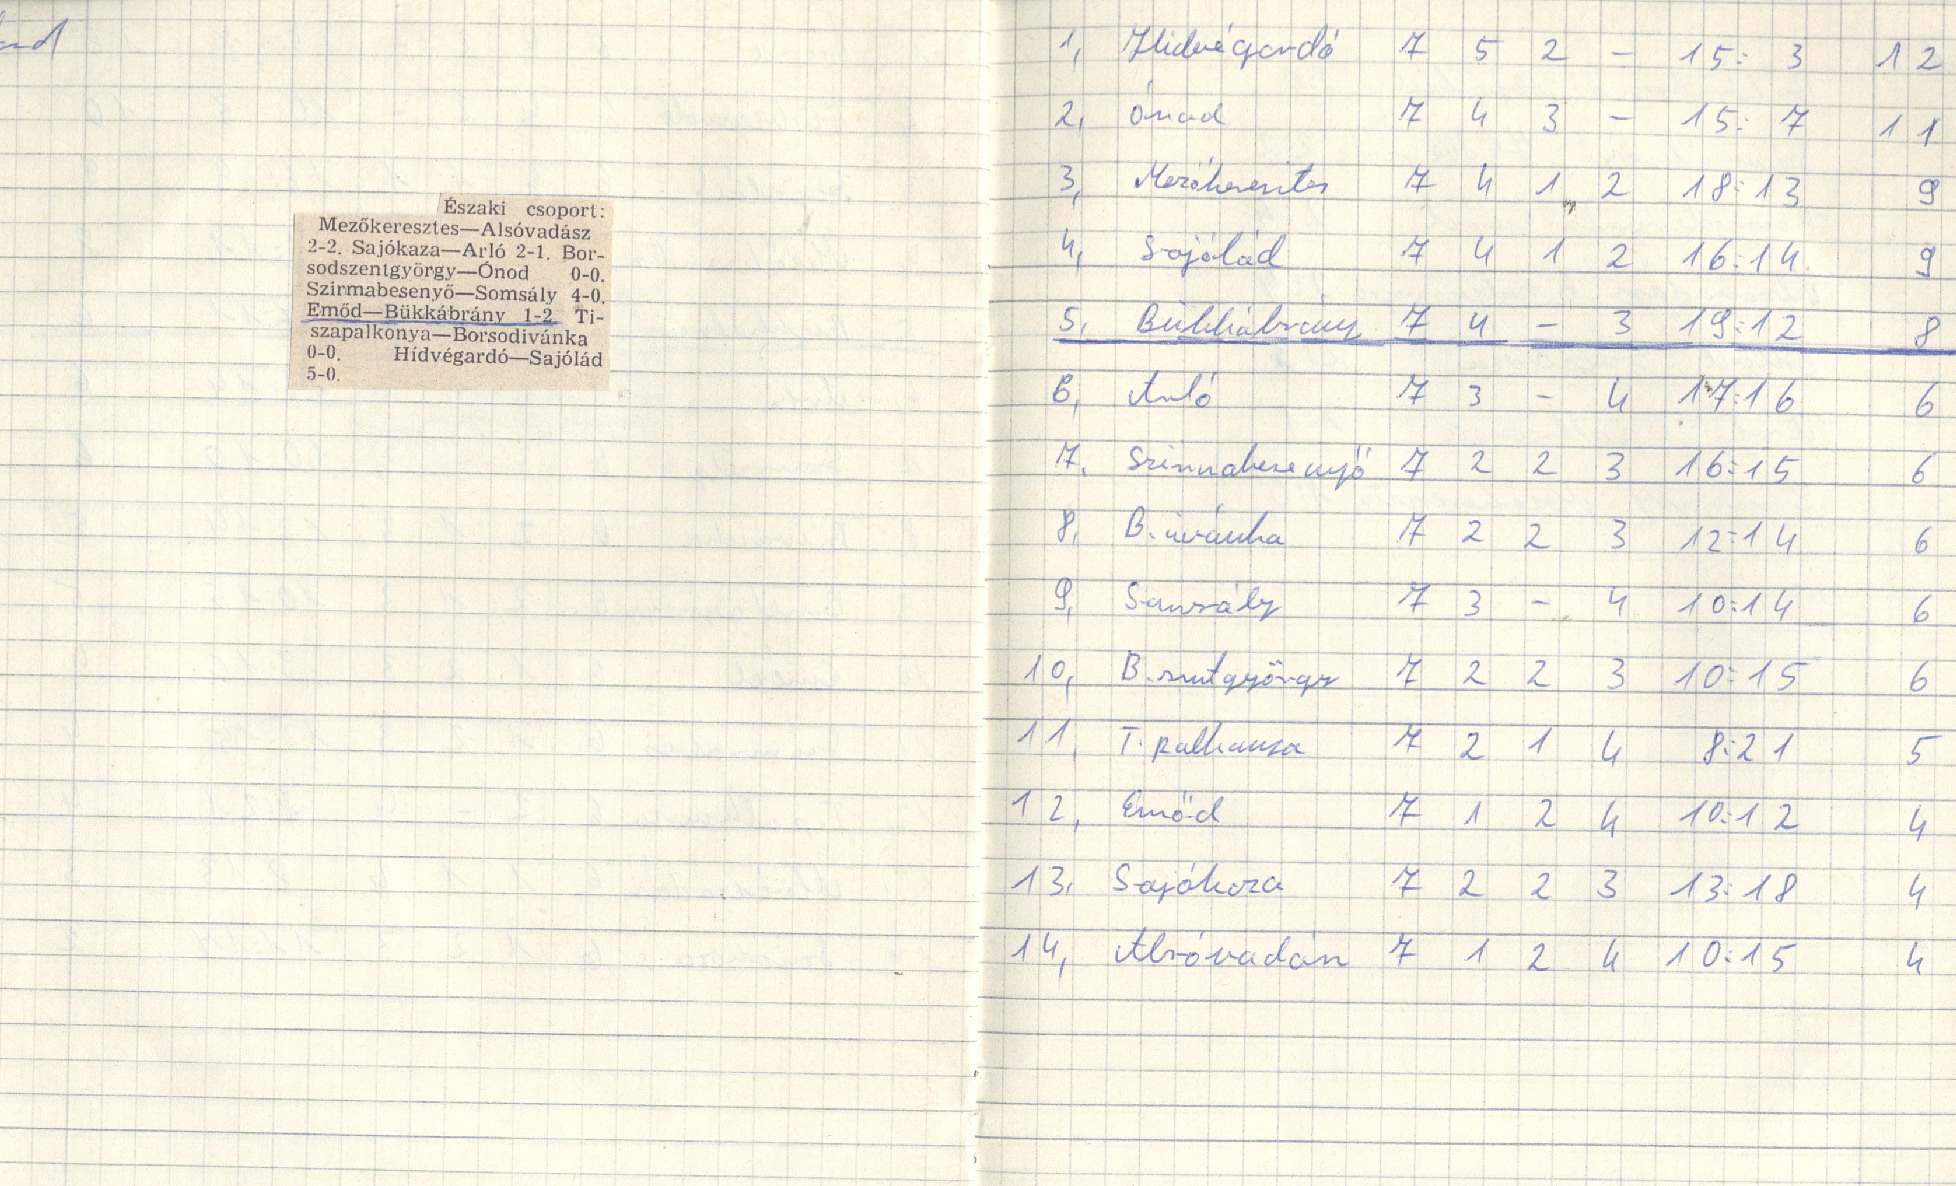 Északi csoport:
Mezőkeresztes—Alsóvadász
2-2. Sajókaza—Arló 2-1. Bor-
sodszentgyörgy—Ónod 0-0.
Szirmabesenyő—Somsály 4-0.
Emőd—Bükkábrány 1-2. Ti-
szapalkonya—Borsodivánka
0-0. Hídvégardó—Sajólád
5-0.
1, Hídvégardó 7 5 2 - 15:3 12
2, Ónod 7 4 3 - 15:7 11
3, Mezőkeresztes 7 4 1 2 18:13 9
4, Sajólád 7 4 1 2 16:14 9
5, Bükkábrány 7 4 - 3 19:12 8
6, Arló 7 3 - 4 17:16 6
7, Szirmabesenyő 7 2 2 3 16:15 6
8, B. ivánka 7 2 2 3 12:14 6
9, Somsály 7 3 - 4 10:14 6
10, B. szentgyörgy 7 2 2 3 10:15 6
11, T. palkonya 7 2 1 4 8:21 5
12, Emőd 7 1 2 4 10:12 4
13, Sajókaza 7 2 2 3 13:18 4
14, Alsóvadász 7 1 2 4 10:15 4